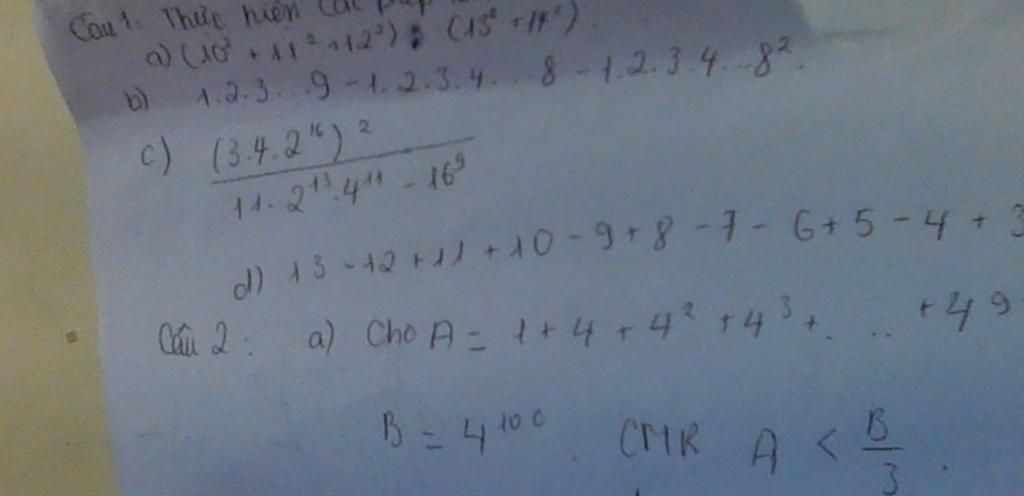 Câu 1: Thực hiện các
a) (10² + 11² + 12²) : (13² + 14²).
b) 1.2.3...9 - 1.2.3.4...8 - 1.2.3.4...8².
c) (3.4.2¹⁶)²
11.2¹³.4¹¹ - 16⁹
d) 13 - 12 + 11 + 10 - 9 + 8 - 7 - 6 + 5 - 4 + 3
Câu 2: a) Cho A = 1 + 4 + 4² + 4³ + .... + 4⁹
B = 4¹⁰⁰. CMR A < B/3.